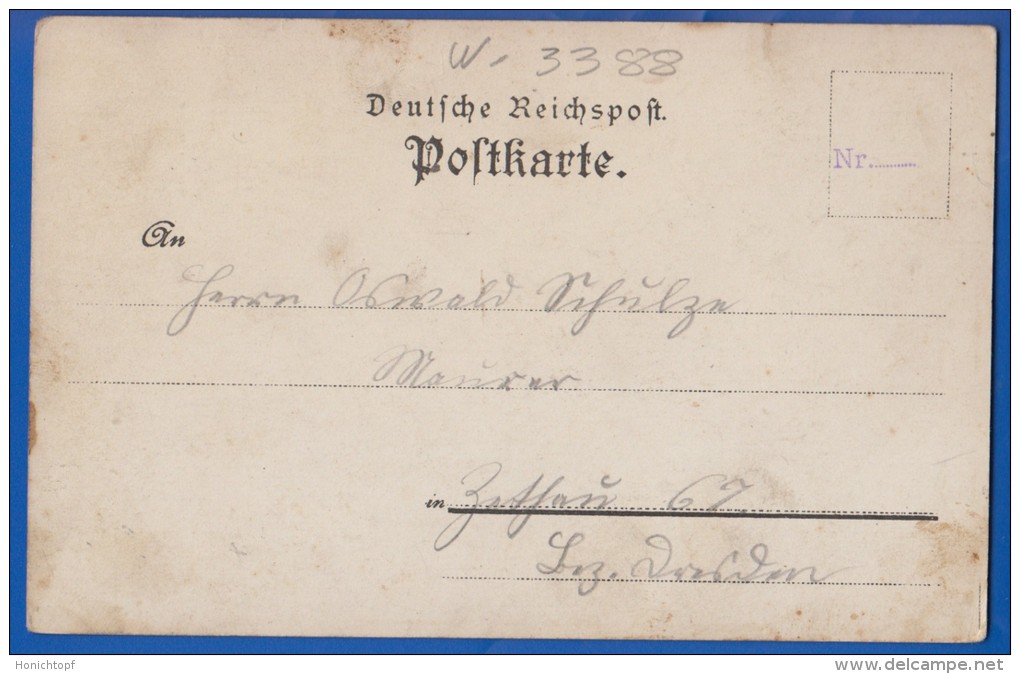 W. 3388
Deutsche Reichspost.
Postkarte.
Nr.
An
Herrn Oswald Schulze
Maurer
in Zethau 67.
Bez. Dresden
Honichtopf
www.delcampe.net